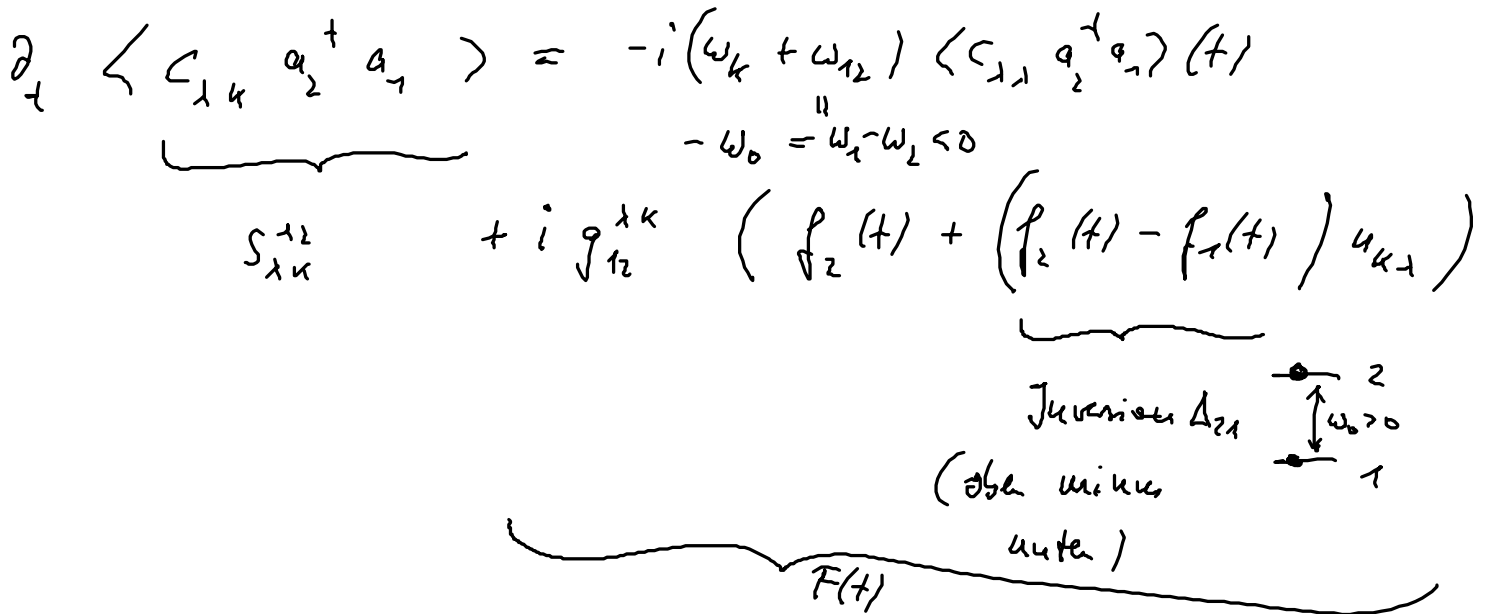 ∂_t ⟨ c_{λκ} a_2^† a_1 ⟩ = -i (ω_κ + ω_{12}) ⟨c_{λλ} a_2^† a_1⟩ (t)
||
-ω_0 = ω_1-ω_2 <0
S_{λκ}^{12} + i g_{12}^{λκ} ( f_2 (t) + ( f_2 (t) - f_1(t) ) n_{κλ} )
2
Inversion Δ_{21} ω_0>0
1
(oben minus
unten)
F(t)